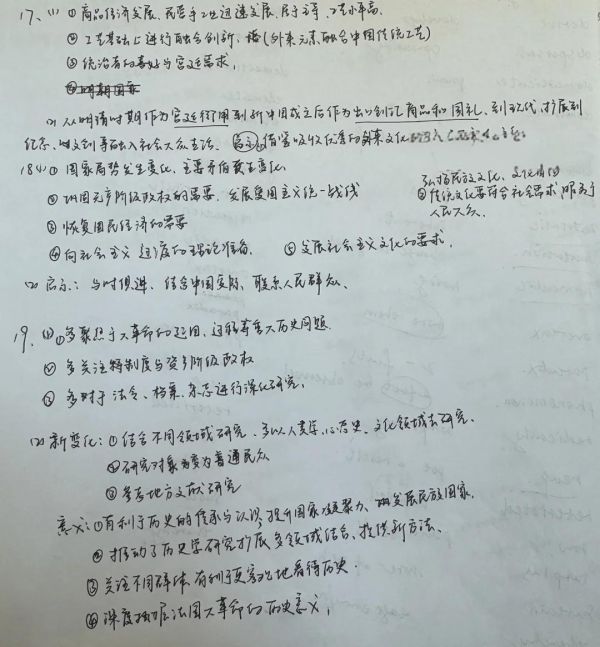 17. (1) ① 商品经济发展, 民营手工业迅速发展, 居于主导, 工艺水平高.
② 工艺基础上进行融合创新, (外来元素融合中国传统工艺)
③ 统治者的喜好与宫廷需求,
(2) 从明清时期作为宫廷御用到新中国成立后作为出口创汇商品和国礼, 到现代, 扩展到
纪念, 文创等融入社会大众生活. 借鉴吸收优秀的外来文化
弘扬民族文化, 文化自信
18(1) ① 国家局势发生变化, 主要矛盾改变
② 传统文化要符合社会需求 服务于
人民大众.
② 巩固无产阶级政权的需要, 发展爱国主义统一战线
③ 恢复国民经济的需要
④ 向社会主义过渡的理论准备. ⑤ 发展社会主义文化的要求.
(2) 启示: 与时俱进, 结合中国实际, 联系人民群众.
19. (1) ① 多聚焦于大革命的起因, 过程等重大历史问题.
② 多关注特制度与资产阶级政权
③ 多对于法令、档案、杂志进行深化研究.
(2) 新变化: ① 结合不同领域研究, 多以人类学, 心态史, 文化领域去研究.
② 研究对象变为普通民众
③ 参考地方文献研究
意义: ① 有利于历史的传承与认识, 提升国家凝聚力, 发展民族国家.
② 推动了历史学研究扩展, 多领域结合, 提供新方法.
③ 关注不同群体, 有利于更客观地看待历史.
④ 深度拓展法国大革命的历史意义,